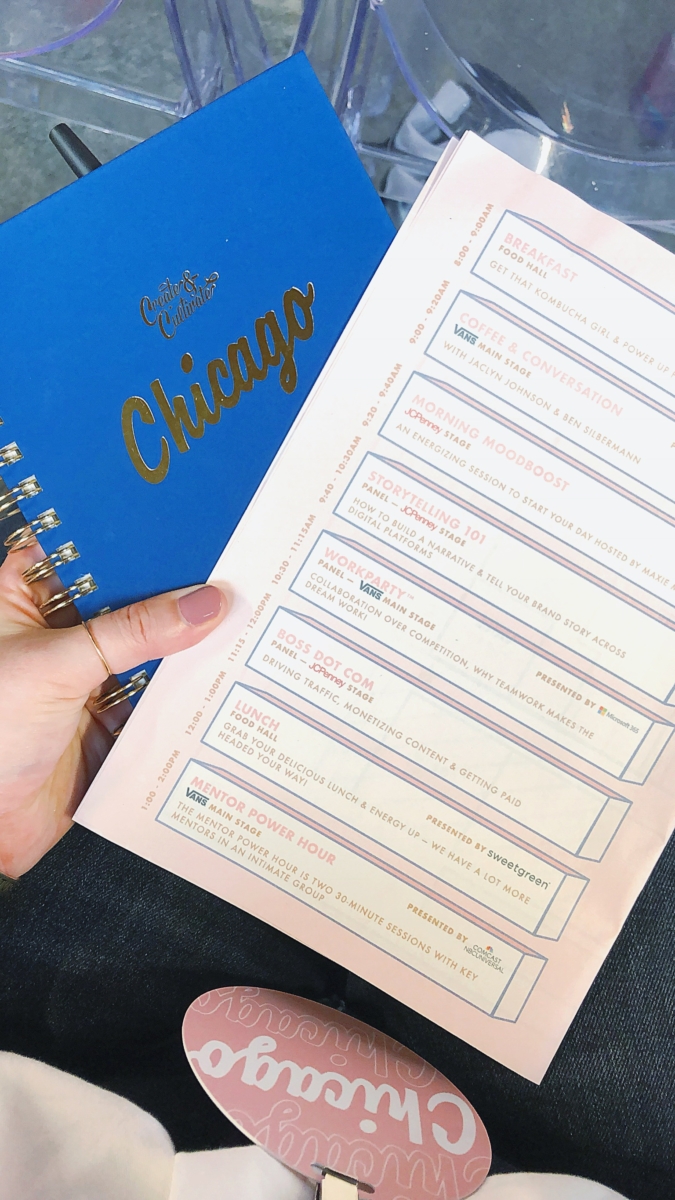 Create &
Cultivate
Chicago
8:00 - 9:00AM
BREAKFAST
FOOD HALL
GET THAT KOMBUCHA GIRL & POWER UP
9:00 - 9:20AM
COFFEE & CONVERSATION
VANS MAIN STAGE
WITH JACLYN JOHNSON & BEN SILBERMANN
9:20 - 9:40AM
MORNING MOODBOOST
JCPenney STAGE
AN ENERGIZING SESSION TO START YOUR DAY HOSTED BY MAXIE
9:40 - 10:30AM
STORYTELLING 101
PANEL – JCPenney STAGE
HOW TO BUILD A NARRATIVE & TELL YOUR BRAND STORY ACROSS
DIGITAL PLATFORMS
10:30 - 11:15AM
WORKPARTY™
PANEL – VANS MAIN STAGE
COLLABORATION OVER COMPETITION, WHY TEAMWORK MAKES THE
DREAM WORK!
PRESENTED BY Microsoft 365
11:15 - 12:00PM
BOSS DOT COM
PANEL – JCPenney STAGE
DRIVING TRAFFIC, MONETIZING CONTENT & GETTING PAID
12:00 - 1:00PM
LUNCH
FOOD HALL
GRAB YOUR DELICIOUS LUNCH & ENERGY UP – WE HAVE A LOT MORE
HEADED YOUR WAY!
PRESENTED BY sweetgreen
1:00 - 2:00PM
MENTOR POWER HOUR
VANS MAIN STAGE
THE MENTOR POWER HOUR IS TWO 30-MINUTE SESSIONS WITH KEY
MENTORS IN AN INTIMATE GROUP
PRESENTED BY COMCAST
NBCUNIVERSAL
Chicago
Chicago
Chicago
Chicago